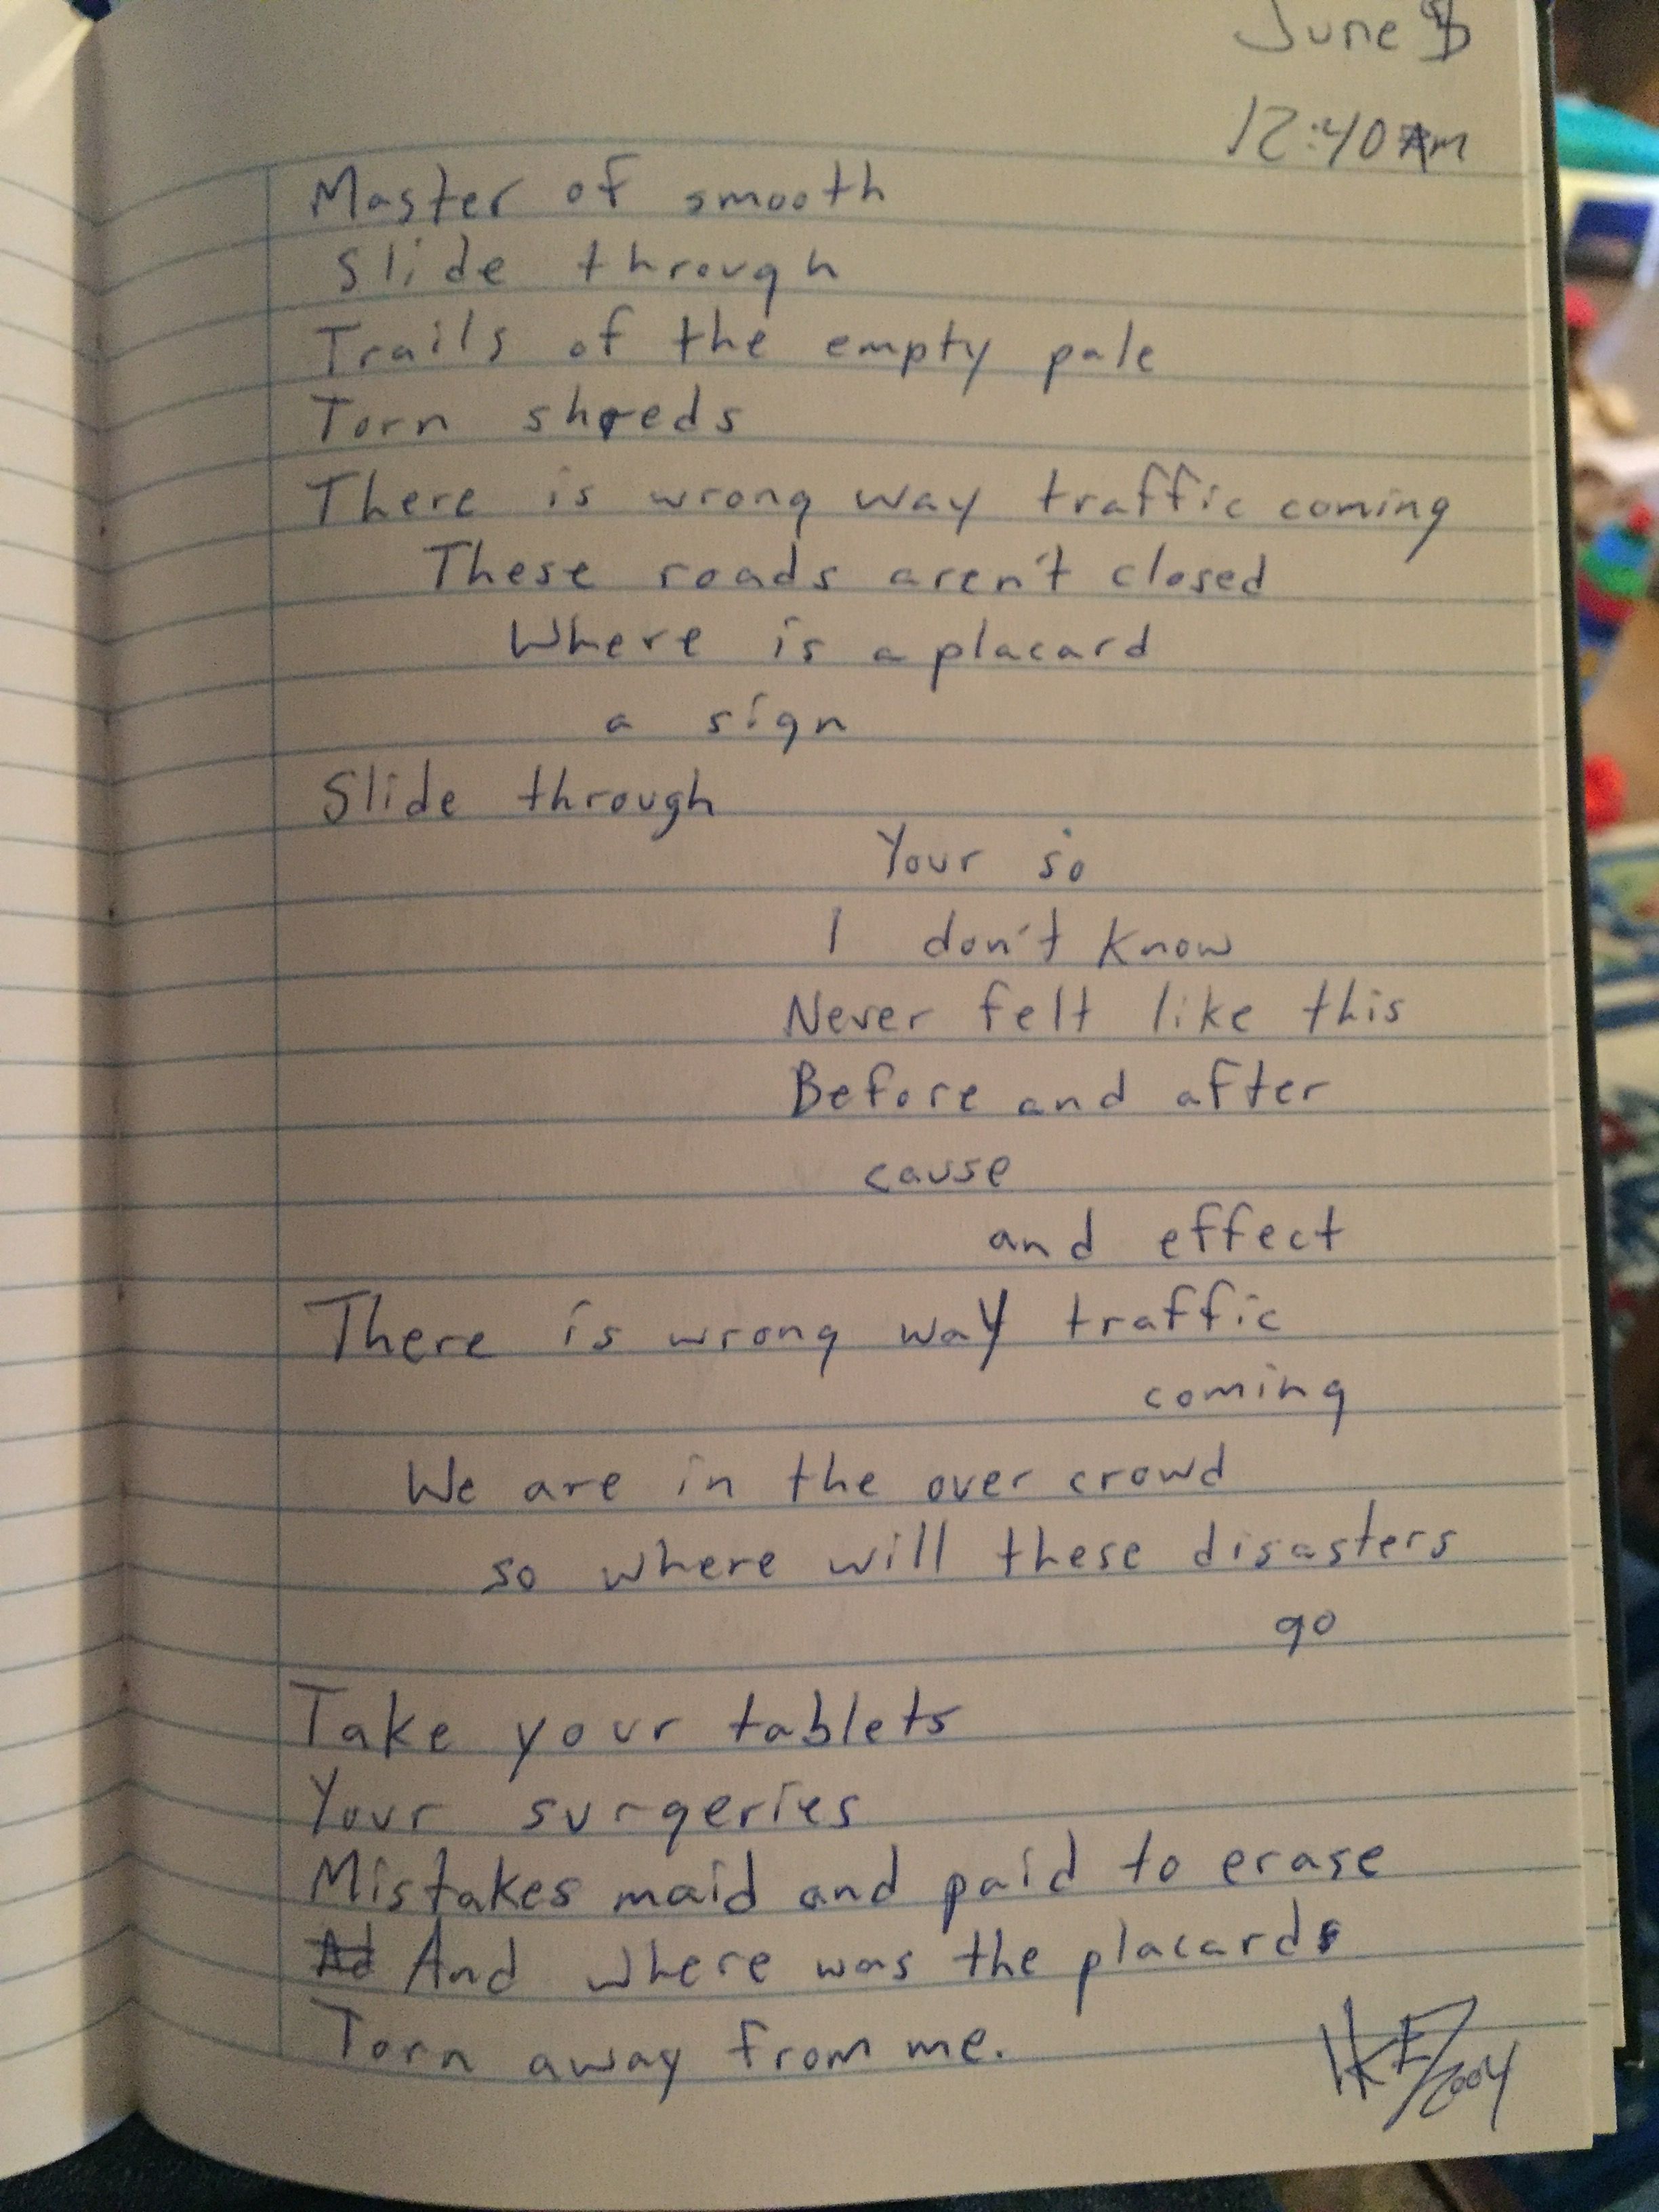 June
12:40 Am
Master of smooth
Slide through
Trails of the empty pale
Torn shreds
There is wrong way traffic coming
These roads aren't closed
Where is a placard
a sign
Slide through
Your so
I don't know
Never felt like this
Before and after
cause
and effect
There is wrong way traffic
coming
We are in the over crowd
so where will these disasters
go
Take your tablets
Your surgeries
Mistakes maid and paid to erase
And where was the placards
Torn away from me.
2004